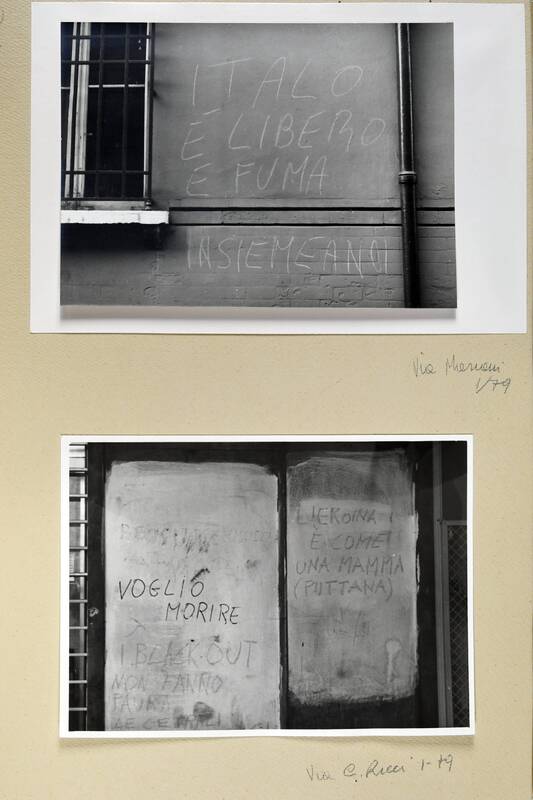 ITALO
È LIBERO
E FUMA
INSIEME A NOI
Via
1/79
VOGLIO
MORIRE
I BLACK-OUT
NON FANNO
PAURA
L'EROINA
È COME
UNA MAMMA
(PUTTANA)
Via C. Ricci 1-79